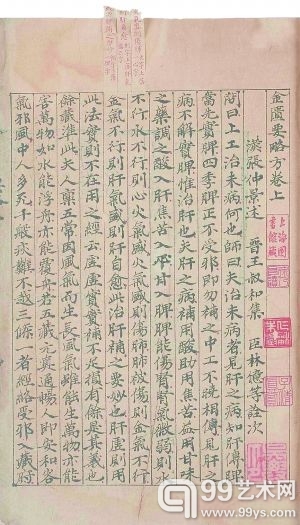 金匱要略方卷上
漢張仲景述 晉王叔和集 臣林億等詮次
問曰上工治未病何也師曰夫治未病者見肝之病知肝傳脾
當先實脾四季脾王不受邪即勿補之中工不曉相傳見肝之
病不解實脾惟治肝也夫肝之病補用酸助用焦苦益用甘味
之藥調之酸入肝焦苦入心甘入脾脾能傷腎腎氣微弱則水
不行水不行則心火氣盛則傷肺肺被傷則金氣不行
金氣不行則肝氣盛則肝自愈此治肝補之要妙也肝虛則用
此法實則不在用之經云虛虛實實補不足損有餘是其義也
餘藏準此夫人稟五常因風氣而生長風氣雖能生萬物亦能
害萬物如水能浮舟亦能覆舟若五藏元真通暢人即安和客
氣邪風中人多死千般疢難不越三條一者經絡受邪入藏府
上海圖書館藏
99艺术网
www.99ys.com